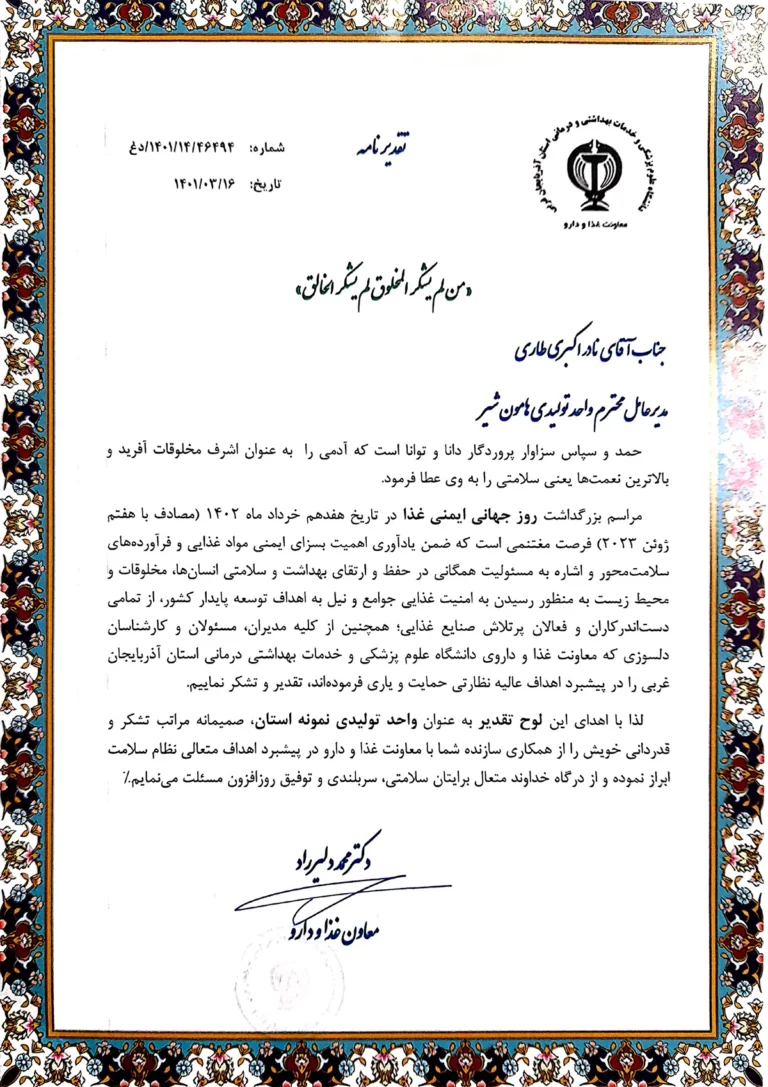 دانشگاه علوم پزشکی و خدمات بهداشتی و درمانی استان آذربایجان غربی
معاونت غذا و دارو
تقدیرنامه
شماره: ۱۴۰۱/۱۴/۴۶۴۹۴/دغ
تاریخ: ۱۴۰۱/۰۳/۱۶
«من لم یشکر المخلوق لم یشکر الخالق»
جناب آقای نادر اکبری طاری
مدیرعامل محترم واحد تولیدی هامون شیر
حمد و سپاس سزاوار پروردگار دانا و توانا است که آدمی را به عنوان اشرف مخلوقات آفرید و
بالاترین نعمت‌ها یعنی سلامتی را به وی عطا فرمود.
مراسم بزرگداشت روز جهانی ایمنی غذا در تاریخ هفدهم خرداد ماه ۱۴۰۲ (مصادف با هفتم
ژوئن ۲۰۲۳) فرصت مغتنمی است که ضمن یادآوری اهمیت بسزای ایمنی مواد غذایی و فرآورده‌های
سلامت‌محور و اشاره به مسئولیت همگانی در حفظ و ارتقای بهداشت و سلامتی انسان‌ها، مخلوقات و
محیط زیست به منظور رسیدن به امنیت غذایی جوامع و نیل به اهداف توسعه پایدار کشور، از تمامی
دست‌اندرکاران و فعالان پرتلاش صنایع غذایی؛ همچنین از کلیه مدیران، مسئولان و کارشناسان
دلسوزی که معاونت غذا و داروی دانشگاه علوم پزشکی و خدمات بهداشتی درمانی استان آذربایجان
غربی را در پیشبرد اهداف عالیه نظارتی حمایت و یاری فرموده‌اند، تقدیر و تشکر نماییم.
لذا با اهدای این لوح تقدیر به عنوان واحد تولیدی نمونه استان، صمیمانه مراتب تشکر و
قدردانی خویش را از همکاری سازنده شما با معاونت غذا و دارو در پیشبرد اهداف متعالی نظام سلامت
ابراز نموده و از درگاه خداوند متعال برایتان سلامتی، سربلندی و توفیق روزافزون مسئلت می‌نمایم.٪
دکتر محمد دلیرراد
معاون غذا و دارو